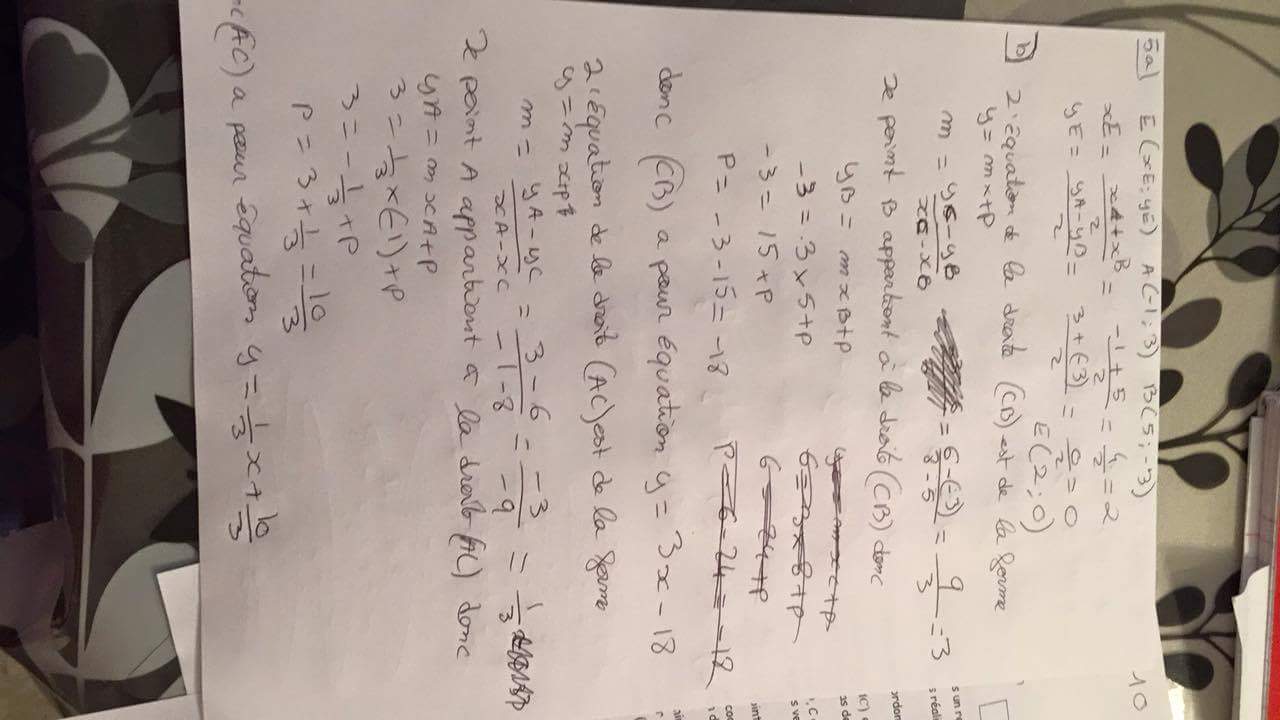 10
5a) E(xE; yE) A(-1; 3) B(5; -3)
xE = (xA + xB)/2 = (-1 + 5)/2 = 4/2 = 2
yE = (yA - yB)/2 = (3 + (-3))/2 = 0/2 = 0
E(2; 0)
b) L'équation de la droite (CB) est de la forme
y = mx + p
m = (yC - yB)/(xC - xB) = (6 - (-3))/(8 - 5) = 9/3 = 3
Le point B appartient à la droite (CB) donc
yB = m xB + p
-3 = 3 x 5 + p
-3 = 15 + p
P = -3 - 15 = -18
y = m x c + p
6 = 3 x 8 + p
6 = 24 + p
P = 6 - 24 = -18
donc (CB) a pour équation y = 3x - 18
L'équation de la droite (AC) est de la forme
y = m x + p
m = (yA - yC)/(xA - xC) = (3 - 6)/(-1 - 8) = -3/-9 = 1/3
Le point A appartient à la droite (AC) donc
yA = m xA + p
3 = 1/3 x (-1) + p
3 = -1/3 + p
P = 3 + 1/3 = 10/3
(AC) a pour équation y = 1/3 x + 10/3